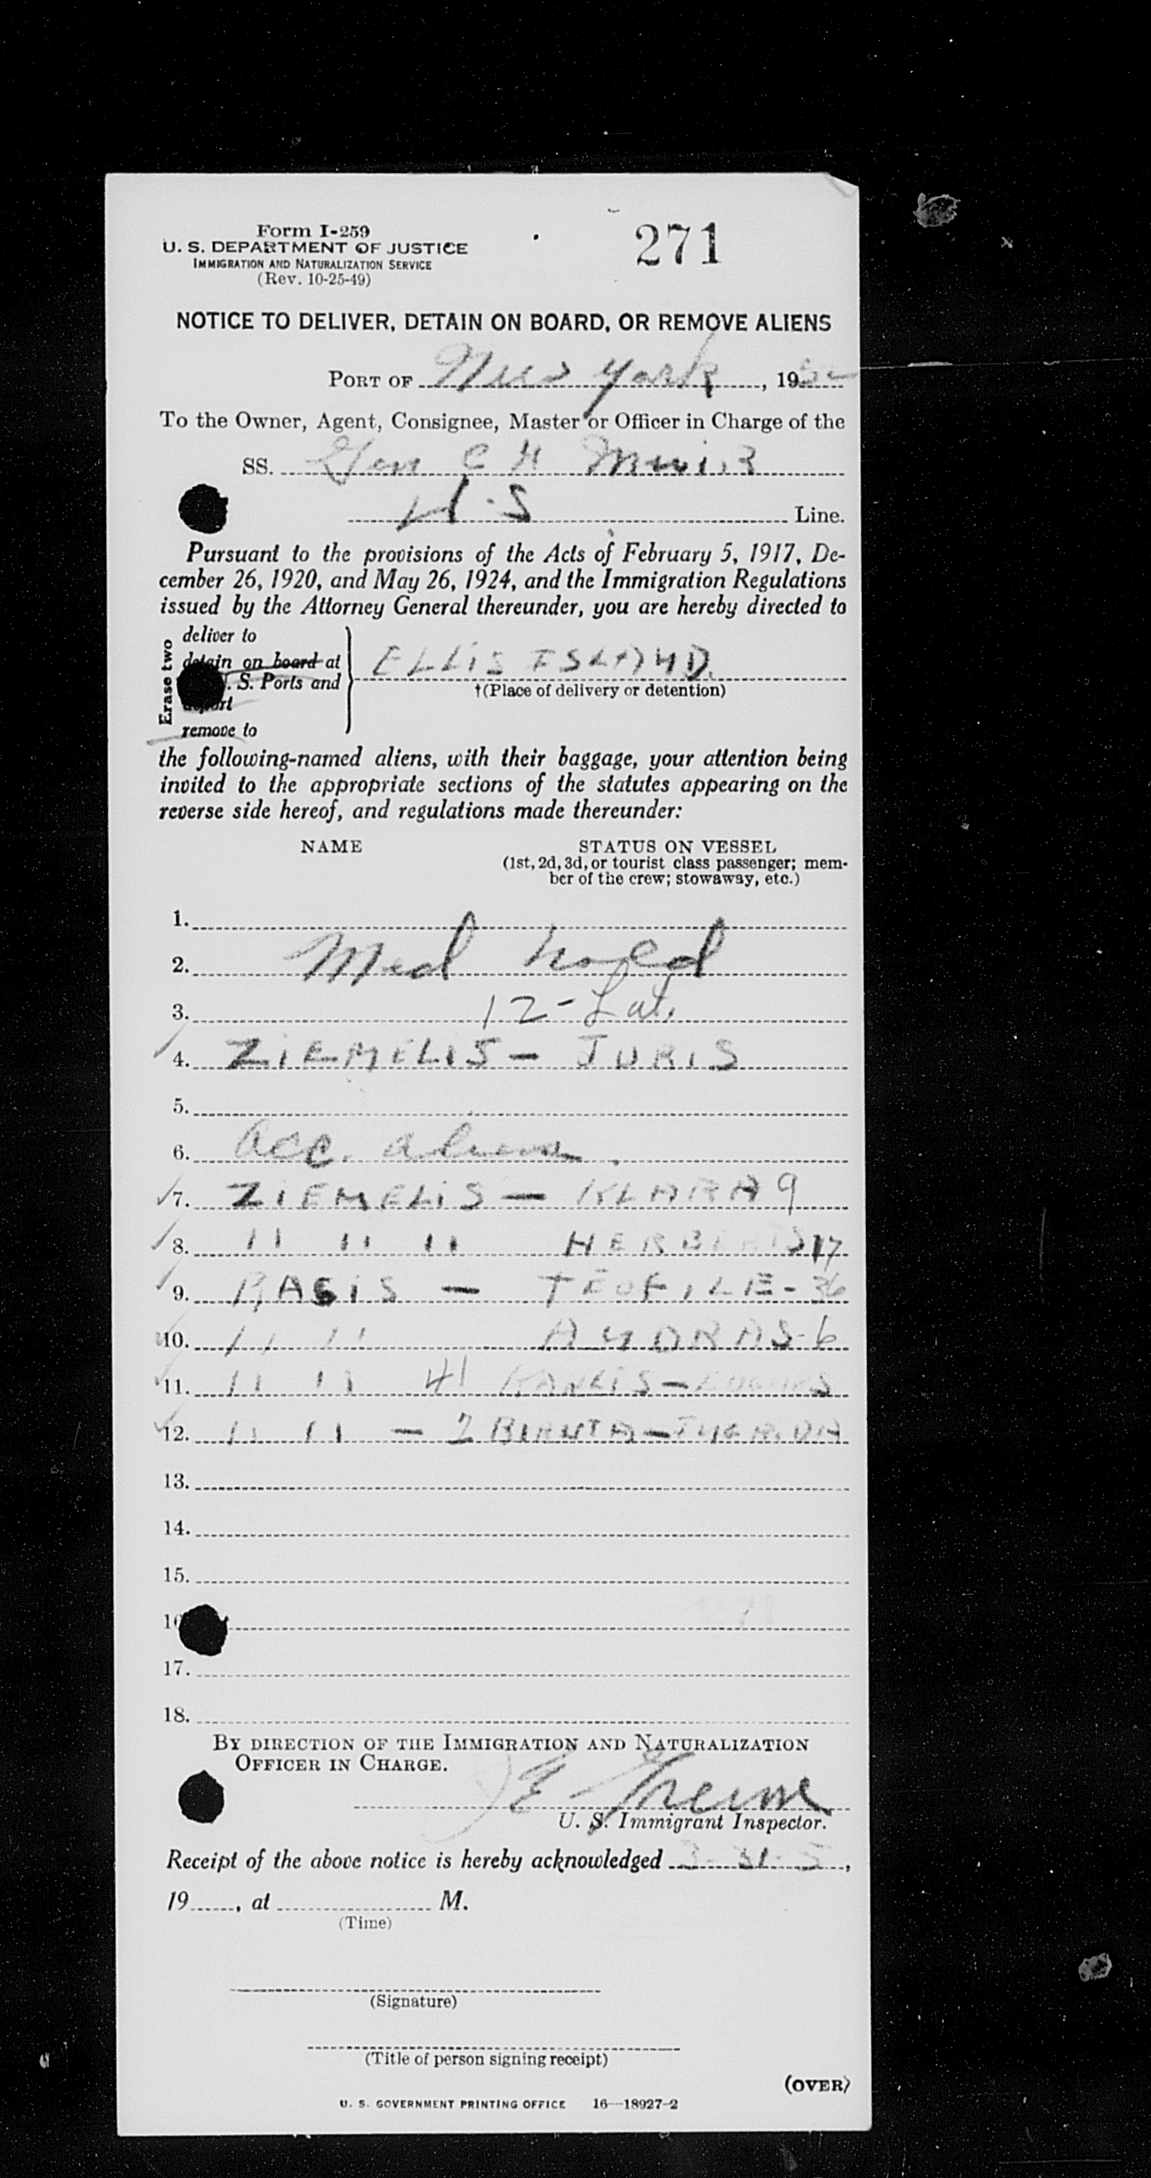 Form I-259
271
U. S. DEPARTMENT OF JUSTICE
IMMIGRATION AND NATURALIZATION SERVICE
(Rev. 10-25-49)
NOTICE TO DELIVER, DETAIN ON BOARD, OR REMOVE ALIENS
PORT OF New York, 195
To the Owner, Agent, Consignee, Master or Officer in Charge of the
SS. Gen C H Muir
U.S Line.
Pursuant to the provisions of the Acts of February 5, 1917, De-
cember 26, 1920, and May 26, 1924, and the Immigration Regulations
issued by the Attorney General thereunder, you are hereby directed to
Erase two
deliver to
detain on board at
. S. Ports and
deport
remove to
ELLIS ISLAND
†(Place of delivery or detention)
the following-named aliens, with their baggage, your attention being
invited to the appropriate sections of the statutes appearing on the
reverse side hereof, and regulations made thereunder:
NAME
STATUS ON VESSEL
(1st, 2d, 3d, or tourist class passenger; mem-
ber of the crew; stowaway, etc.)
1.
2. Med hold
3. 12 - Lat.
4. ZIEMELIS - JURIS
5.
6. acc. aliens.
7. ZIEMELIS - KLARA 9
8. " " " HERBERTS 17
9. RASIS - TEOFILE - 36
10. " " ANDRAS - 6
11. " " 41
12. " " - 2 BIRUTA -
13.
14.
15.
16
17.
18.
BY DIRECTION OF THE IMMIGRATION AND NATURALIZATION
OFFICER IN CHARGE.
U. S. Immigrant Inspector.
Receipt of the above notice is hereby acknowledged 3-31-5,
19 , at M.
(Time)
(Signature)
(Title of person signing receipt)
(OVER)
U. S. GOVERNMENT PRINTING OFFICE 16—18927-2